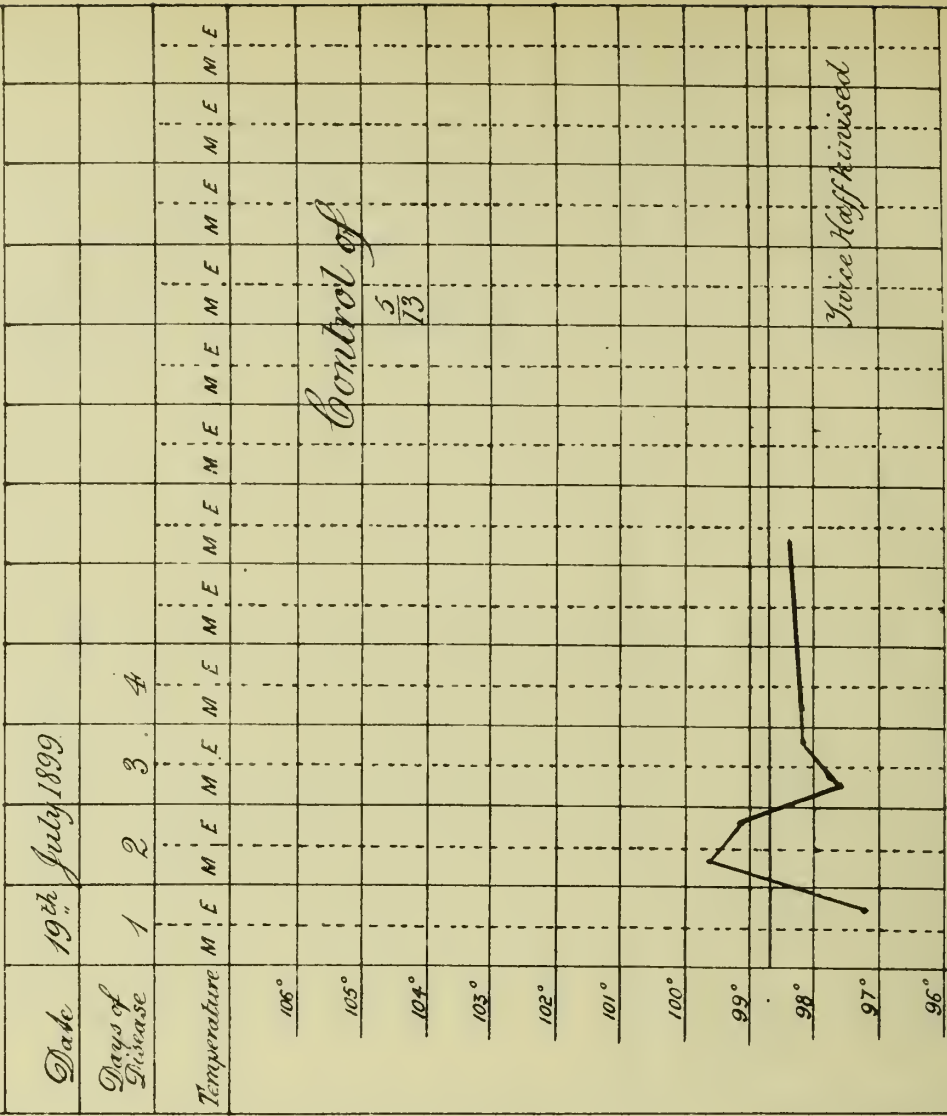 Date 19th „ July 1899
Days of
Disease 1 2 3 4
Temperature M E M E M E M E M E M E M E M E M E M E M E M E
106°
105°
104°
103°
102°
101°
100°
99°
98°
97°
96°
Control of
5
13
Twice Haffkinised